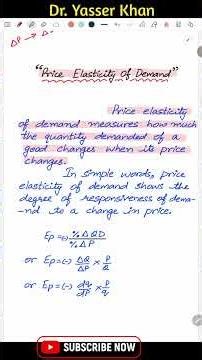 Dr. Yasser Khan
ΔP → Δ-
"Price Elasticity of Demand"
Price elasticity
of demand measures how much
the quantity demanded of a
good changes when its price
changes.
In simple words, price
elasticity of demand shows the
degree of responsiveness of dema-
-nd to a change in price.
Ep = (-) %ΔQD / %ΔP
or Ep = (-) ΔQ/ΔP × P/Q
or Ep = (-) dq/dP × P/q
SUBSCRIBE NOW